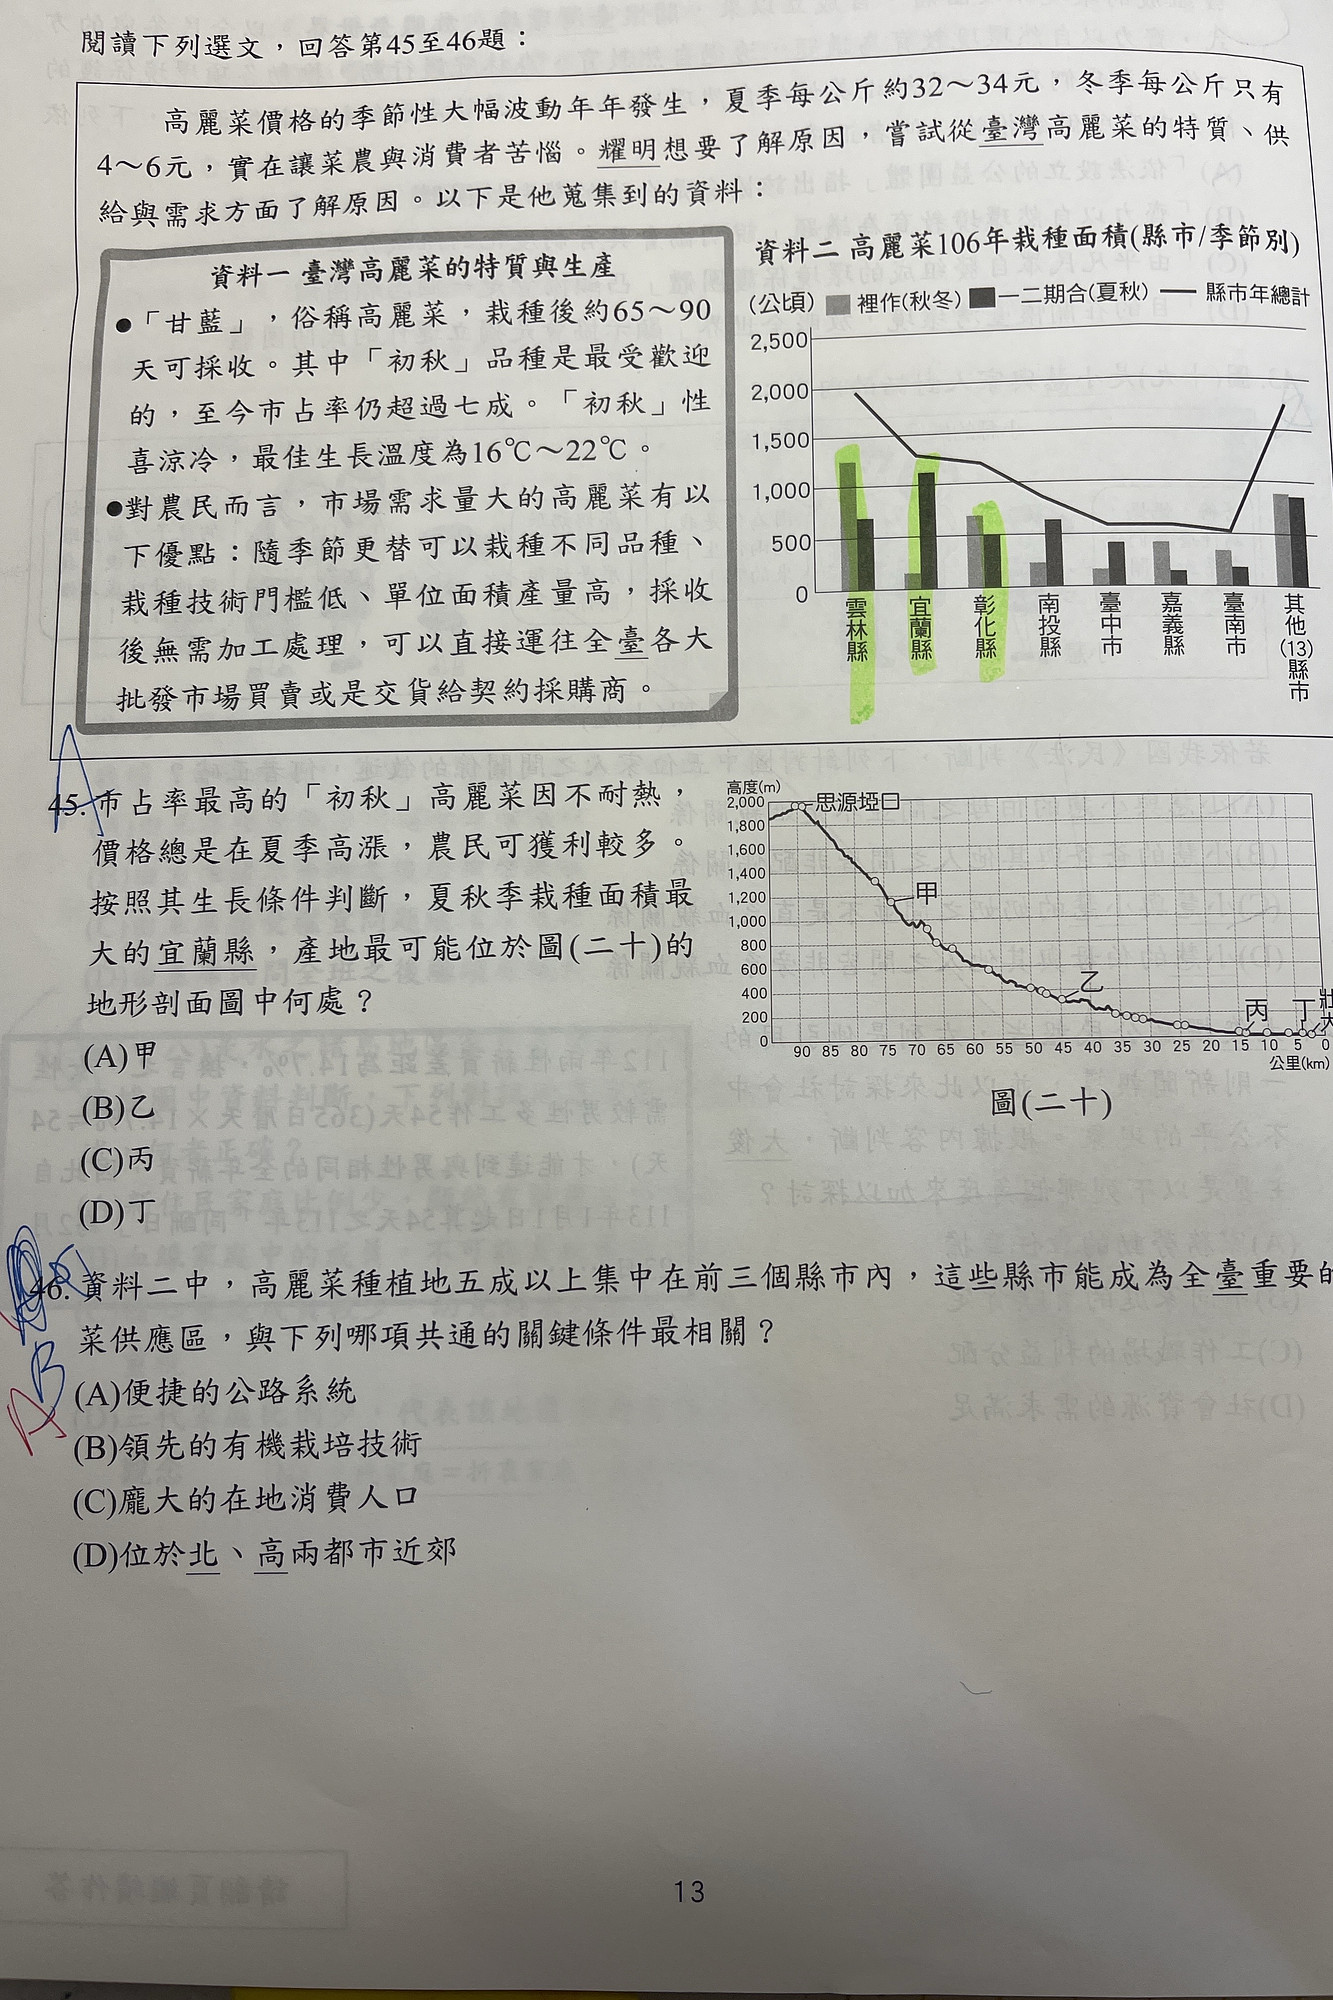 閱讀下列選文，回答第45至46題：
高麗菜價格的季節性大幅波動年年發生，夏季每公斤約32～34元，冬季每公斤只有
4～6元，實在讓菜農與消費者苦惱。耀明想要了解原因，嘗試從臺灣高麗菜的特質、供
給與需求方面了解原因。以下是他蒐集到的資料：
資料一 臺灣高麗菜的特質與生產
●「甘藍」，俗稱高麗菜，栽種後約65～90
天可採收。其中「初秋」品種是最受歡迎
的，至今市占率仍超過七成。「初秋」性
喜涼冷，最佳生長溫度為16℃～22℃。
●對農民而言，市場需求量大的高麗菜有以
下優點：隨季節更替可以栽種不同品種、
栽種技術門檻低、單位面積產量高，採收
後無需加工處理，可以直接運往全臺各大
批發市場買賣或是交貨給契約採購商。
資料二 高麗菜106年栽種面積(縣市/季節別)
(公頃) 裡作(秋冬) 一二期合(夏秋) 縣市年總計
2,500
2,000
1,500
1,000
500
0
雲林縣 宜蘭縣 彰化縣 南投縣 臺中市 嘉義縣 臺南市 其他(13)縣市
A
45. 市占率最高的「初秋」高麗菜因不耐熱，
價格總是在夏季高漲，農民可獲利較多。
按照其生長條件判斷，夏秋季栽種面積最
大的宜蘭縣，產地最可能位於圖(二十)的
地形剖面圖中何處？
(A)甲
(B)乙
(C)丙
(D)丁
高度(m)
2,000
1,800
1,600
1,400
1,200
1,000
800
600
400
200
0
思源埡口
甲
乙
丙
丁
壯
90 85 80 75 70 65 60 55 50 45 40 35 30 25 20 15 10 5 0
公里(km)
圖(二十)
46. 資料二中，高麗菜種植地五成以上集中在前三個縣市內，這些縣市能成為全臺重要的
菜供應區，與下列哪項共通的關鍵條件最相關？
B
A
(A)便捷的公路系統
(B)領先的有機栽培技術
(C)龐大的在地消費人口
(D)位於北、高兩都市近郊
13